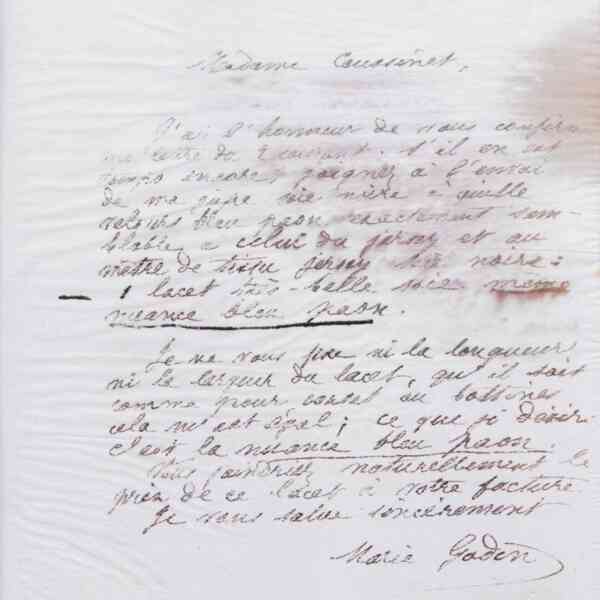 Madame Coussinet,
J'ai l'honneur de vous confirmer
ma lettre du 2 courant. S'il en est
temps encore, joignez à l'envoi
de ma jupe soie
velours bleu paon exactement sem-
blable à celui du jersey et au
mètre de tissu jersey soie noire :
— 1 lacet très-belle soie même
nuance bleu paon.
Je ne vous fixe ni la longueur
ni la largeur du lacet, qu'il soit
comme pour corset ou bottines
cela m'est égal ; ce que je désire
c'est la nuance bleu paon.
Vous joindrez naturellement le
prix de ce lacet à votre facture
Je vous salue sincèrement
Marie Godin